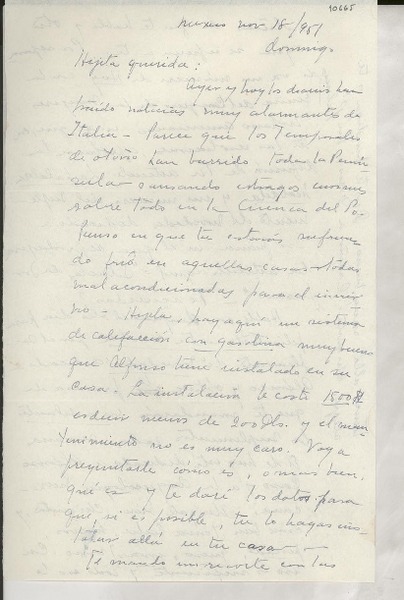 10665
Mexico nov. 18-/951
domingo
Hijita querida:
Ayer y hoy los diarios han
traido noticias muy alarmantes de
Italia - Parece que los Temporales
de otoño han barrido toda la Penín
sula causando estragos enormes
sobre todo en la Cuenca del Po.
Pienso en que tu estarás sufrien
do frío en aquellas casas todas
mal acondicionadas para el invier
no - Hijita, hay aquí un sistema
de calefacción con gasolina muy bueno
que Alfonso tiene instalado en su
casa. La instalación le costó 1500 $
es decir menos de 200 Dls. y el man
tenimiento no es muy caro. Voy a
preguntarle cómo es, o mas bien
qué es y te daré los datos para
que, si es posible, tu lo hagas ins
talar allá en tu casa -
Te mando un recorte con las